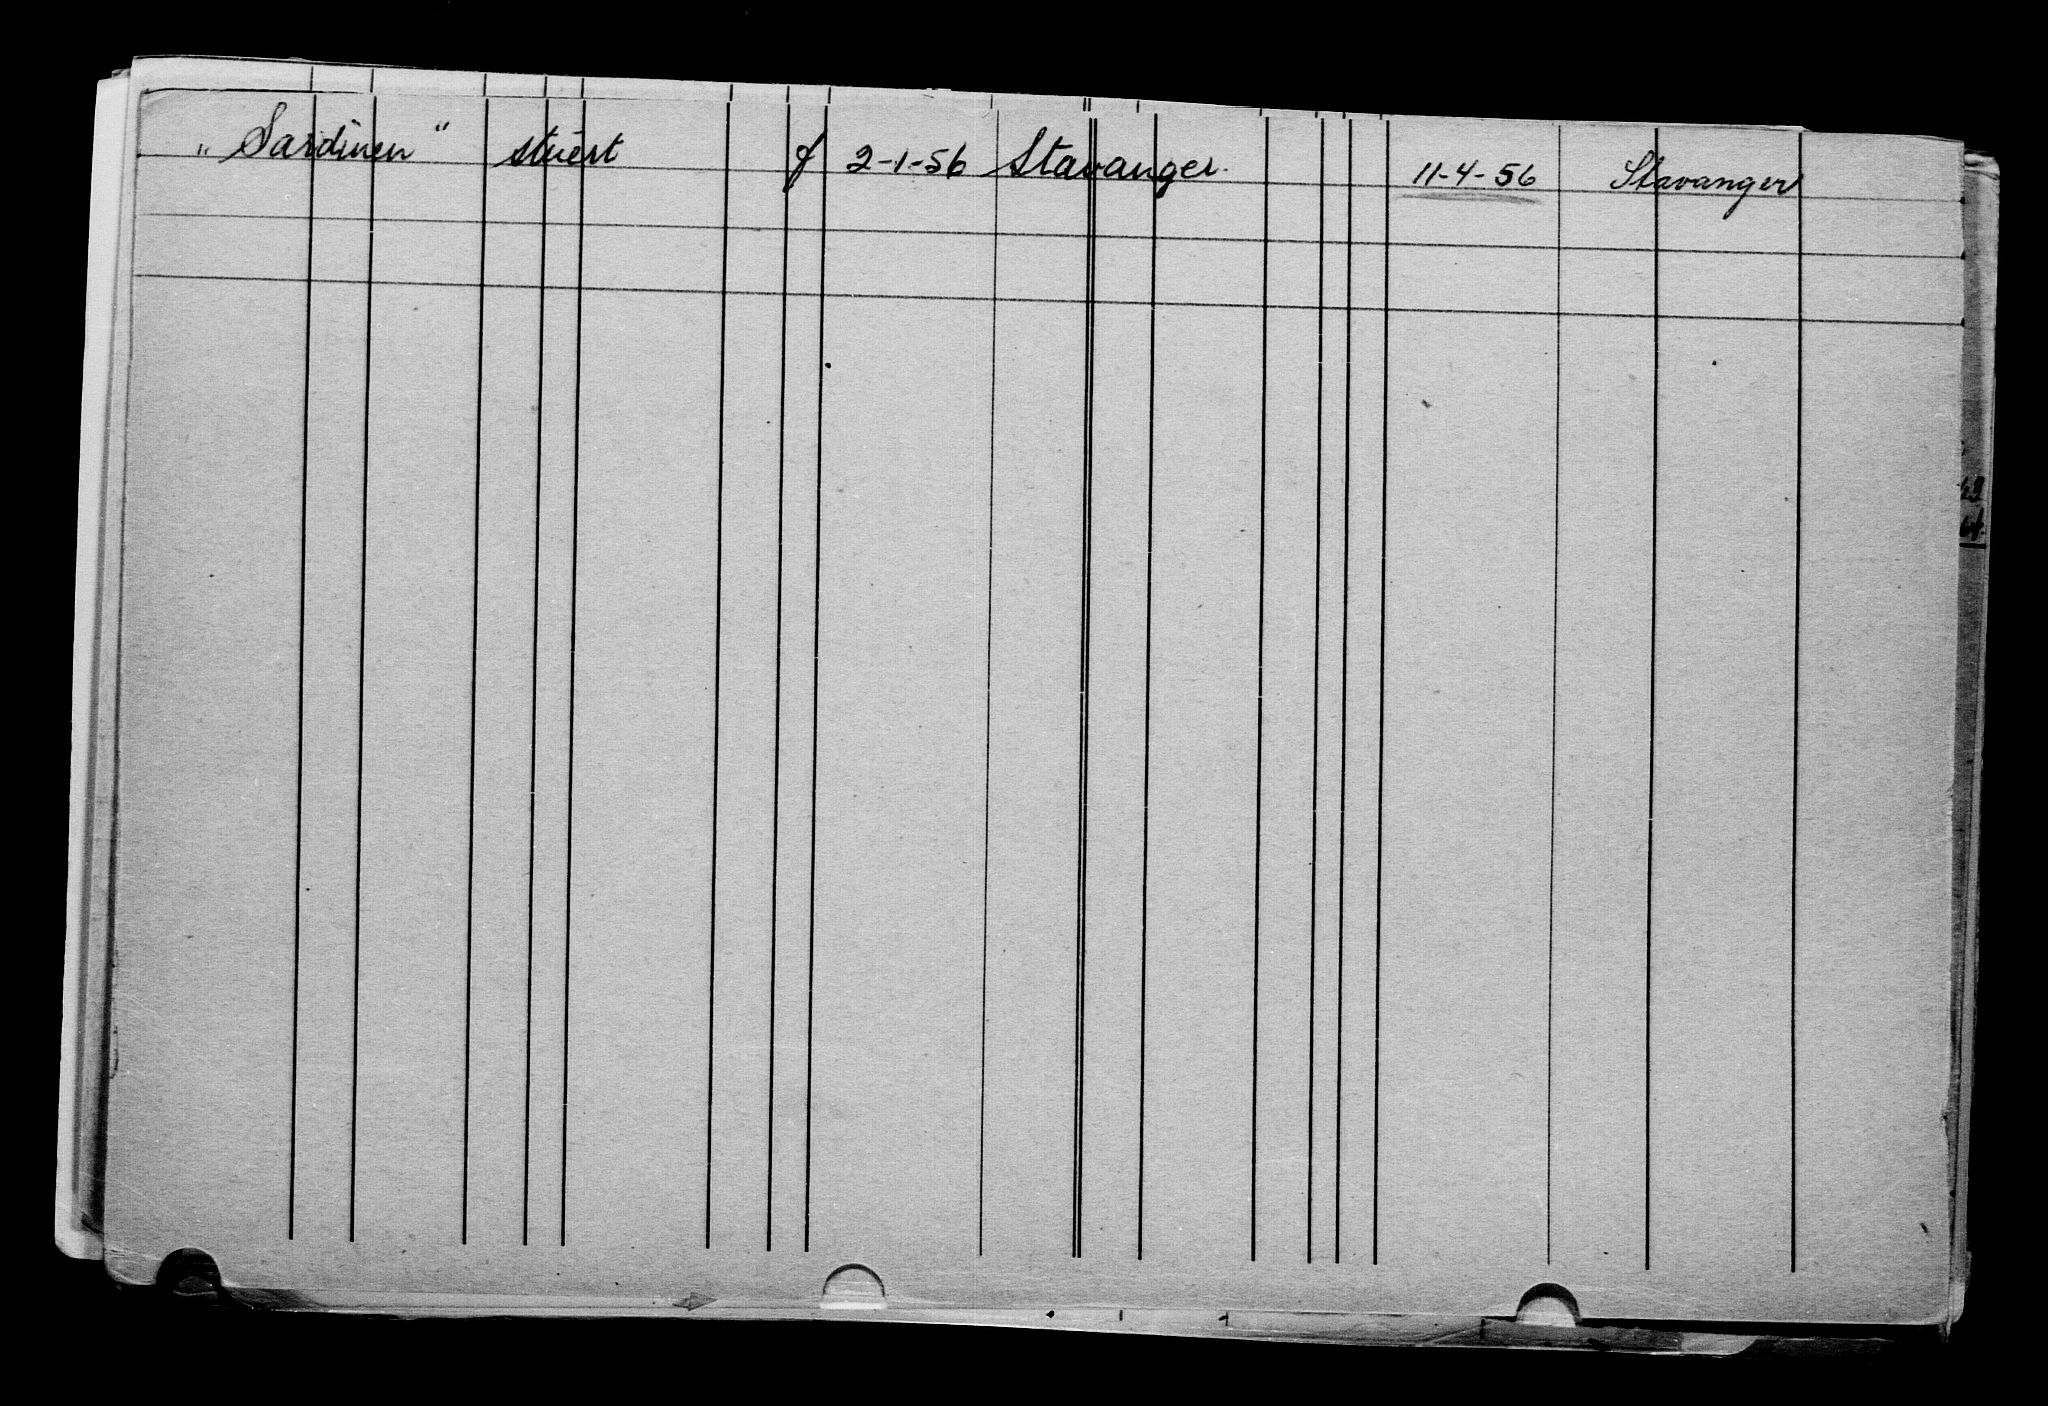 „Sardinen" stuert f 2-1-56 Stavanger. 11-4-56 Stavanger